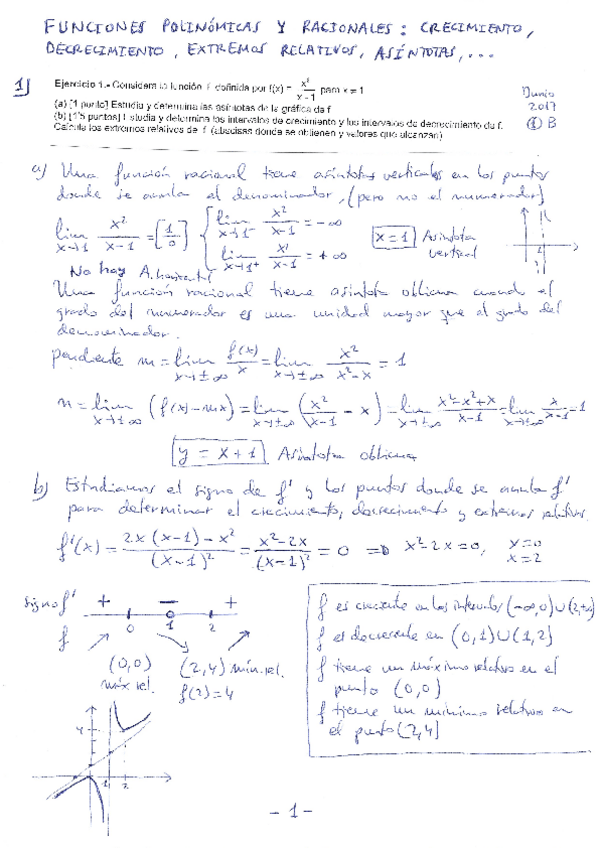 FUNCIONES POLINÓMICAS Y RACIONALES: CRECIMIENTO,
DECRECIMIENTO, EXTREMOS RELATIVOS, ASÍNTOTAS,...
1) Ejercicio 1.- Considera la función f definida por f(x) = x²/(x − 1) para x ≠ 1
(a) [1 punto] Estudia y determina las asíntotas de la gráfica de f
(b) [1'5 puntos] Estudia y determina los intervalos de crecimiento y los intervalos de decrecimiento de f.
Calcula los extremos relativos de f (abscisas donde se obtienen y valores que alcanzan)
Junio
2017
(1) B
a) Una función racional tiene asíntotas verticales en los puntos
donde se anula el denominador, (pero no el numerador)
lim x→1 x²/(x-1) = [1/0] { lim x→1⁻ x²/(x-1) = -∞
lim x→1⁺ x²/(x-1) = +∞
x=1 Asíntota vertical
1
No hay A. horizontal
Una función racional tiene asíntota oblicua cuando el
grado del numerador es una unidad mayor que el grado del
denominador.
pendiente m = lim x→±∞ f(x)/x = lim x→±∞ x²/(x²-x) = 1
n = lim x→±∞ (f(x)-mx) = lim x→±∞ (x²/(x-1) - x) = lim x→±∞ (x²-x²+x)/(x-1) = lim x→±∞ x/(x-1) = 1
y = x+1 Asíntota oblicua
b) Estudiamos el signo de f' y los puntos donde se anula f'
para determinar el crecimiento, decrecimiento y extremos relativos.
f'(x) = (2x(x-1) - x²)/(x-1)² = (x²-2x)/(x-1)² = 0 ⇒ x²-2x=0, x=0
x=2
signo f' + − +
0 1 2
f
(0,0) (2,4) mín. rel.
máx rel. f(2)=4
f es creciente en los intervalos (-∞,0)∪(2,+∞)
f es decreciente en (0,1)∪(1,2)
f tiene un máximo relativo en el
punto (0,0)
f tiene un mínimo relativo en
el punto (2,4)
4
1 2
- 1 -